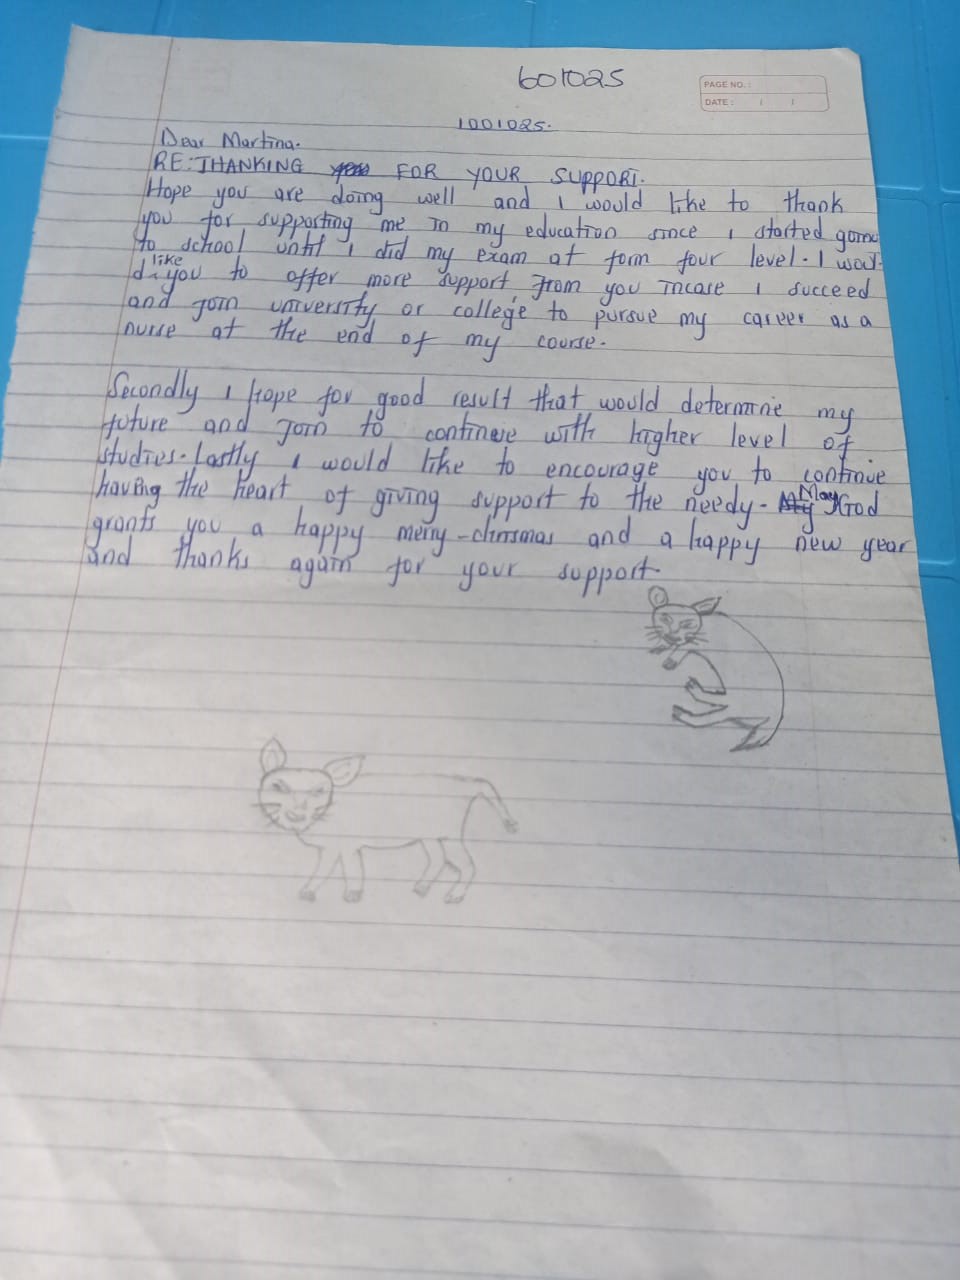 601025
PAGE NO. :
DATE : / /
1001025.
Dear Martina.
RE: THANKING FOR YOUR SUPPORT.
Hope you are doing well and I would like to thank
you for supporting me in my education since I started going
to school until I did my exam at form four level. I woul-
d like you to offer more support from you incase I succeed
and join university or college to pursue my career as a
nurse at the end of my course.
Secondly I hope for good result that would determine my
future and join to continue with higher level of
studies. Lastly I would like to encourage you to continue
having the heart of giving support to the needy. May God
grants you a happy merry-chrismas and a happy new year
and thanks again for your support.